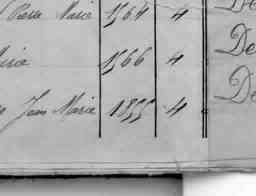 Pierre Marie 1564 4 De
Marie 1566 4 De
Jean Marie 1855 4 De